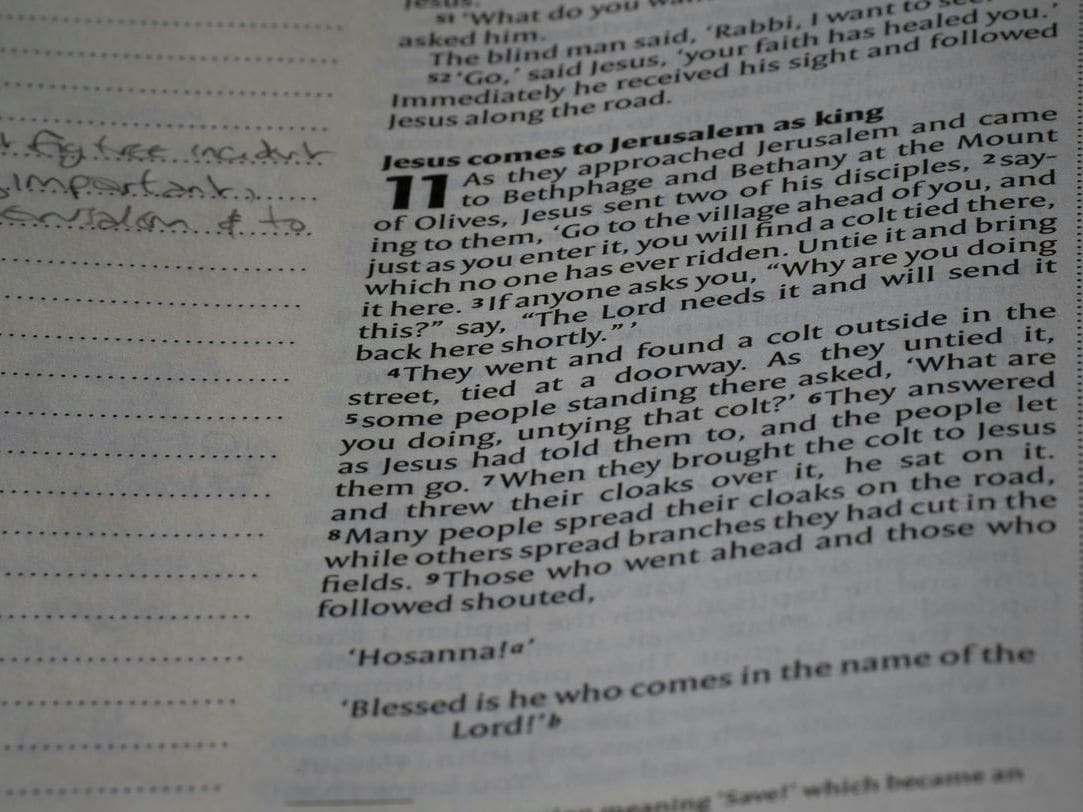 fig tree incident
important
& to
Jesus.
51 'What do you
asked him.
The blind man said, 'Rabbi, I want to see.'
52 'Go,' said Jesus, 'your faith has healed you.'
Immediately he received his sight and followed
Jesus along the road.
Jesus comes to Jerusalem as king
11 As they approached Jerusalem and came
to Bethphage and Bethany at the Mount
of Olives, Jesus sent two of his disciples, 2 say-
ing to them, 'Go to the village ahead of you, and
just as you enter it, you will find a colt tied there,
which no one has ever ridden. Untie it and bring
it here. 3 If anyone asks you, "Why are you doing
this?" say, "The Lord needs it and will send it
back here shortly." '
4 They went and found a colt outside in the
street, tied at a doorway. As they untied it,
5 some people standing there asked, 'What are
you doing, untying that colt?' 6 They answered
as Jesus had told them to, and the people let
them go. 7 When they brought the colt to Jesus
and threw their cloaks over it, he sat on it.
8 Many people spread their cloaks on the road,
while others spread branches they had cut in the
fields. 9 Those who went ahead and those who
followed shouted,
'Hosanna!a'
'Blessed is he who comes in the name of the
Lord!'b
meaning 'Save!' which became an